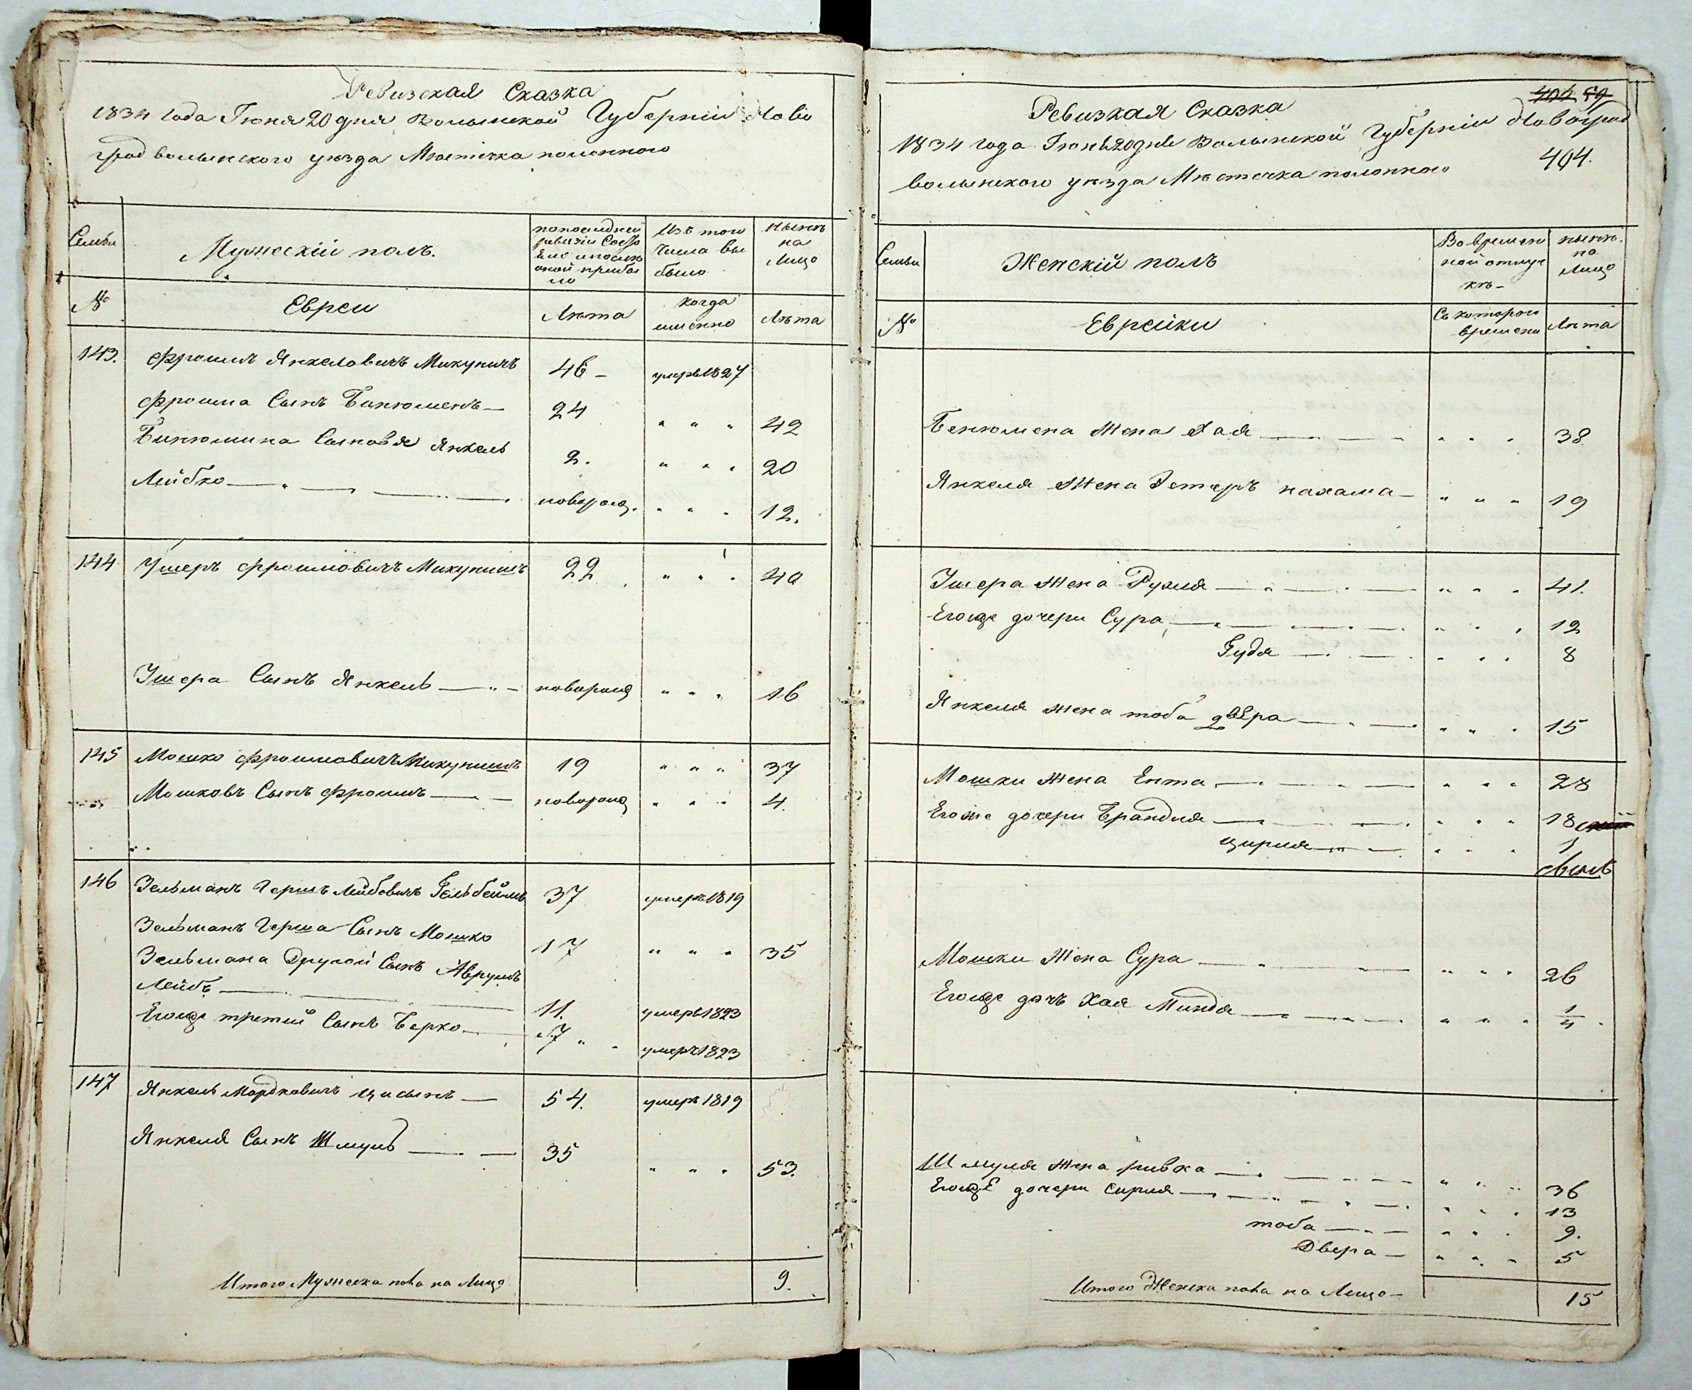 Ревизская Сказка
1834 года Июня 20 дня Волынской Губернии Ново
град волынского уезда Местечка полонного
Семьи
Мужескій полъ.
по последней ревизіи состо
Изъ того числа вы было
ныне на лицо
№
Евреи
Лѣта
когда именно
Лѣта
143. Фроимъ Янкеловичъ Микуничъ 46 – умеръ 1827
Фроима Сынъ Бинюменъ 24 " " " 42
Бинюмина Сыновя Янкель 2. " " " 20
Лейбко новорожд. " " " 12.
144 Ушеръ Фроимовичъ Микуничъ 22 " " " 40
Ушера Сынъ Янкель новорожд " " " 16
145 Мошко Фроимовичъ Микуничъ 19 " " " 37
Мошковъ Сынъ Фроимъ новорожд " " " 4.
146 Зельманъ Гершъ Лейбовичъ 37 умеръ 1819
Зельманъ Герша Сынъ Мошко 17 " " " 35
Зельмана Другой Сынъ Аврумъ
Лейбъ 11. умеръ 1823
Егоже третий Сынъ Берко 7 " " умеръ 1823
147 Янкель Мордковичъ 54. умеръ 1819
Янкеля Сынъ Шмуль 35 " " " 53.
Итого Мужеска пола на Лицо 9.
404 59
Ревизкая Сказка
1834 года Июня 20 дня Волынской Губерніи Новоград
волынского уезда Местечка полонного 404.
Семьи
Женскій полъ
Во времен ной отлуч кѣ –
ныне. на Лицо
№
Еврейки
Съ которого времени
Лѣта
Бенюмена Жена Хая " " " 38
Янкеля Жена Эстеръ нахама " " " 19
Ушера Жена Рухля " " " 41.
Егоже дочери Сура " " " 12
Гудя " " " 8
Янкеля жена тоба двера " " " 15
Мошки Жена Ента " " " 28
Егоже дочери Брандля " " " 18
цирля " " " 1
Мошки Жена Сура " " " 26
Егоже дочъ Хая Миндя " " " 1/4.
Шмуля Жена ривка " " " 36
Егоже дочери Сирля " " " 13
тоба " " " 9.
Двера " " " 5
Итого Женска пола на Лицо – 15